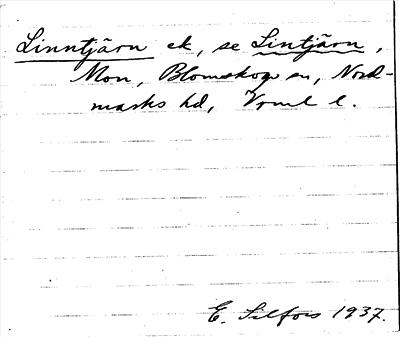 Linntjärn ek, se Lintjärn,
Mon, Blomskogs sn, Nord-
marks hd, Vrml l.
E. Silfors 1937.